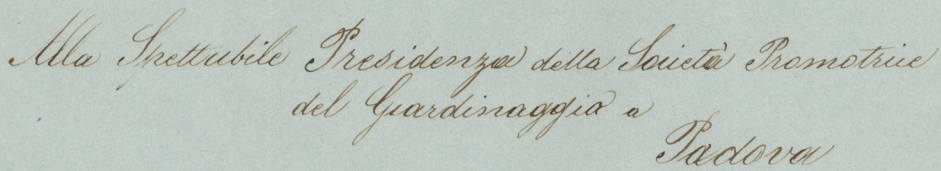 Alla Spettabile Presidenza della Società Promotrice
del Giardinaggio a
Padova